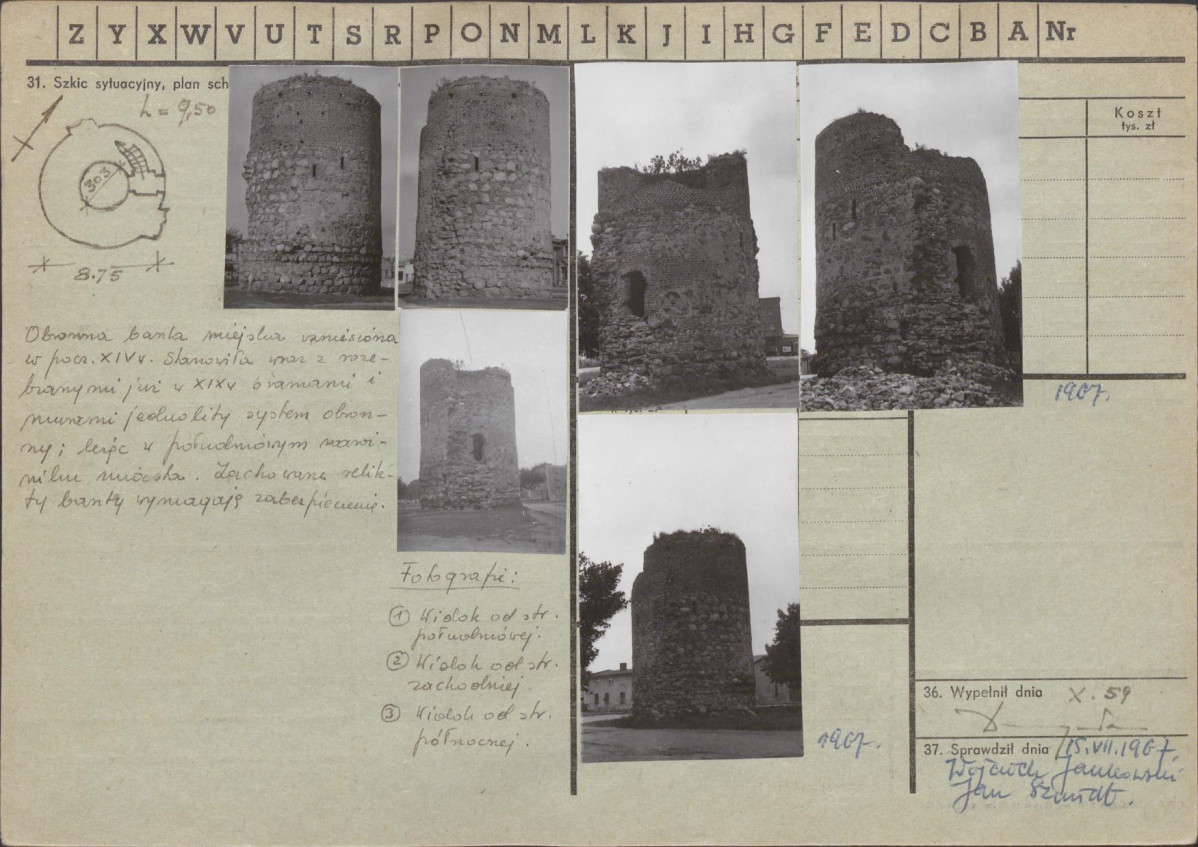 Z Y X W V U T S R P O N M L K J I H G F E D C B A Nr
31. Szkic sytuacyjny, plan sch
h = 9,50
303
8.75
Obronna baszta miejska wzniesiona
w pocz. XIV w. Stanowiła wraz z roze-
branymi już w XIX w bramami i
murami jednolity system obron-
ny; leżąc w południowym narożni-
miasta. Zachowane relik-
ty baszty wymagają zabezpieczenia.
Fotografie:
① Widok od str.
południowej.
② Widok od str.
zachodniej.
③ Widok od str.
północnej.
Koszt
tys. zł
1967.
1967.
36. Wypełnił dnia X. 59
37. Sprawdził dnia 15.VII.1967
Wojciech Jankowski
Jan Szmidt.